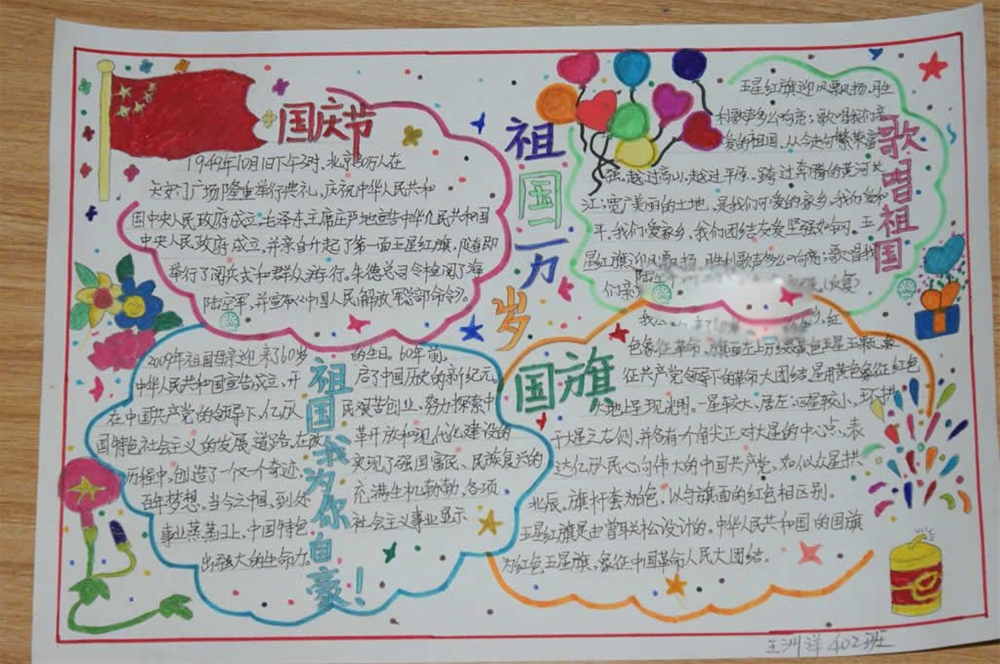 国庆节
1949年10月1日下午3时,北京30万人在
天安门广场隆重举行典礼,庆祝中华人民共和
国中央人民政府成立。毛泽东主席庄严地宣告中华人民共和国
中央人民政府成立,并亲自升起了第一面五星红旗,随即
举行了阅兵式和群众游行。朱德总司令检阅了海
陆空军,并宣布《中国人民解放军总部命令》。
祖国万岁
歌唱祖国
五星红旗迎风飘扬,胜
利歌声多么响亮;歌唱我们亲
爱的祖国,从今走向繁荣富
强。越过高山,越过平原,跨过奔腾的黄河长
江;宽广美丽的土地,是我们可爱的家乡,我们爱和
平,我们爱家乡,我们团结友爱坚强如钢。五
星红旗迎风飘扬,胜利歌声多么响亮;歌唱我
们亲
祖国我为你自豪!
2009年祖国母亲迎来了60岁的生日。60年前,
中华人民共和国宣告成立,开启了中国历史的新纪元,
在中国共产党的领导下,亿万人民艰苦创业,努力探索中
国特色社会主义的发展道路,在改革开放和现代化建设的
历程中,创造了一个又一个奇迹,实现了强国富民、民族复兴的
百年梦想。当今中国,到处充满生机勃勃,各项
事业蒸蒸日上,中国特色社会主义事业显示
出强大的生命力。
国旗
红
色象征革命,旗面左上方缀黄色五星五颗,象
征共产党领导下的革命大团结,星用黄色象征红色
大地上呈现光明。一星较大,居左;四星较小,环拱
于大星之右侧,并各有一个角尖正对大星的中心点,表
达亿万人民心向伟大的中国共产党,如似众星拱
北辰。旗杆套为白色,以与旗面的红色相区别。
五星红旗是由曾联松设计的,中华人民共和国的国旗
为红色五星旗,象征中国革命人民大团结。
王洲洋 402班